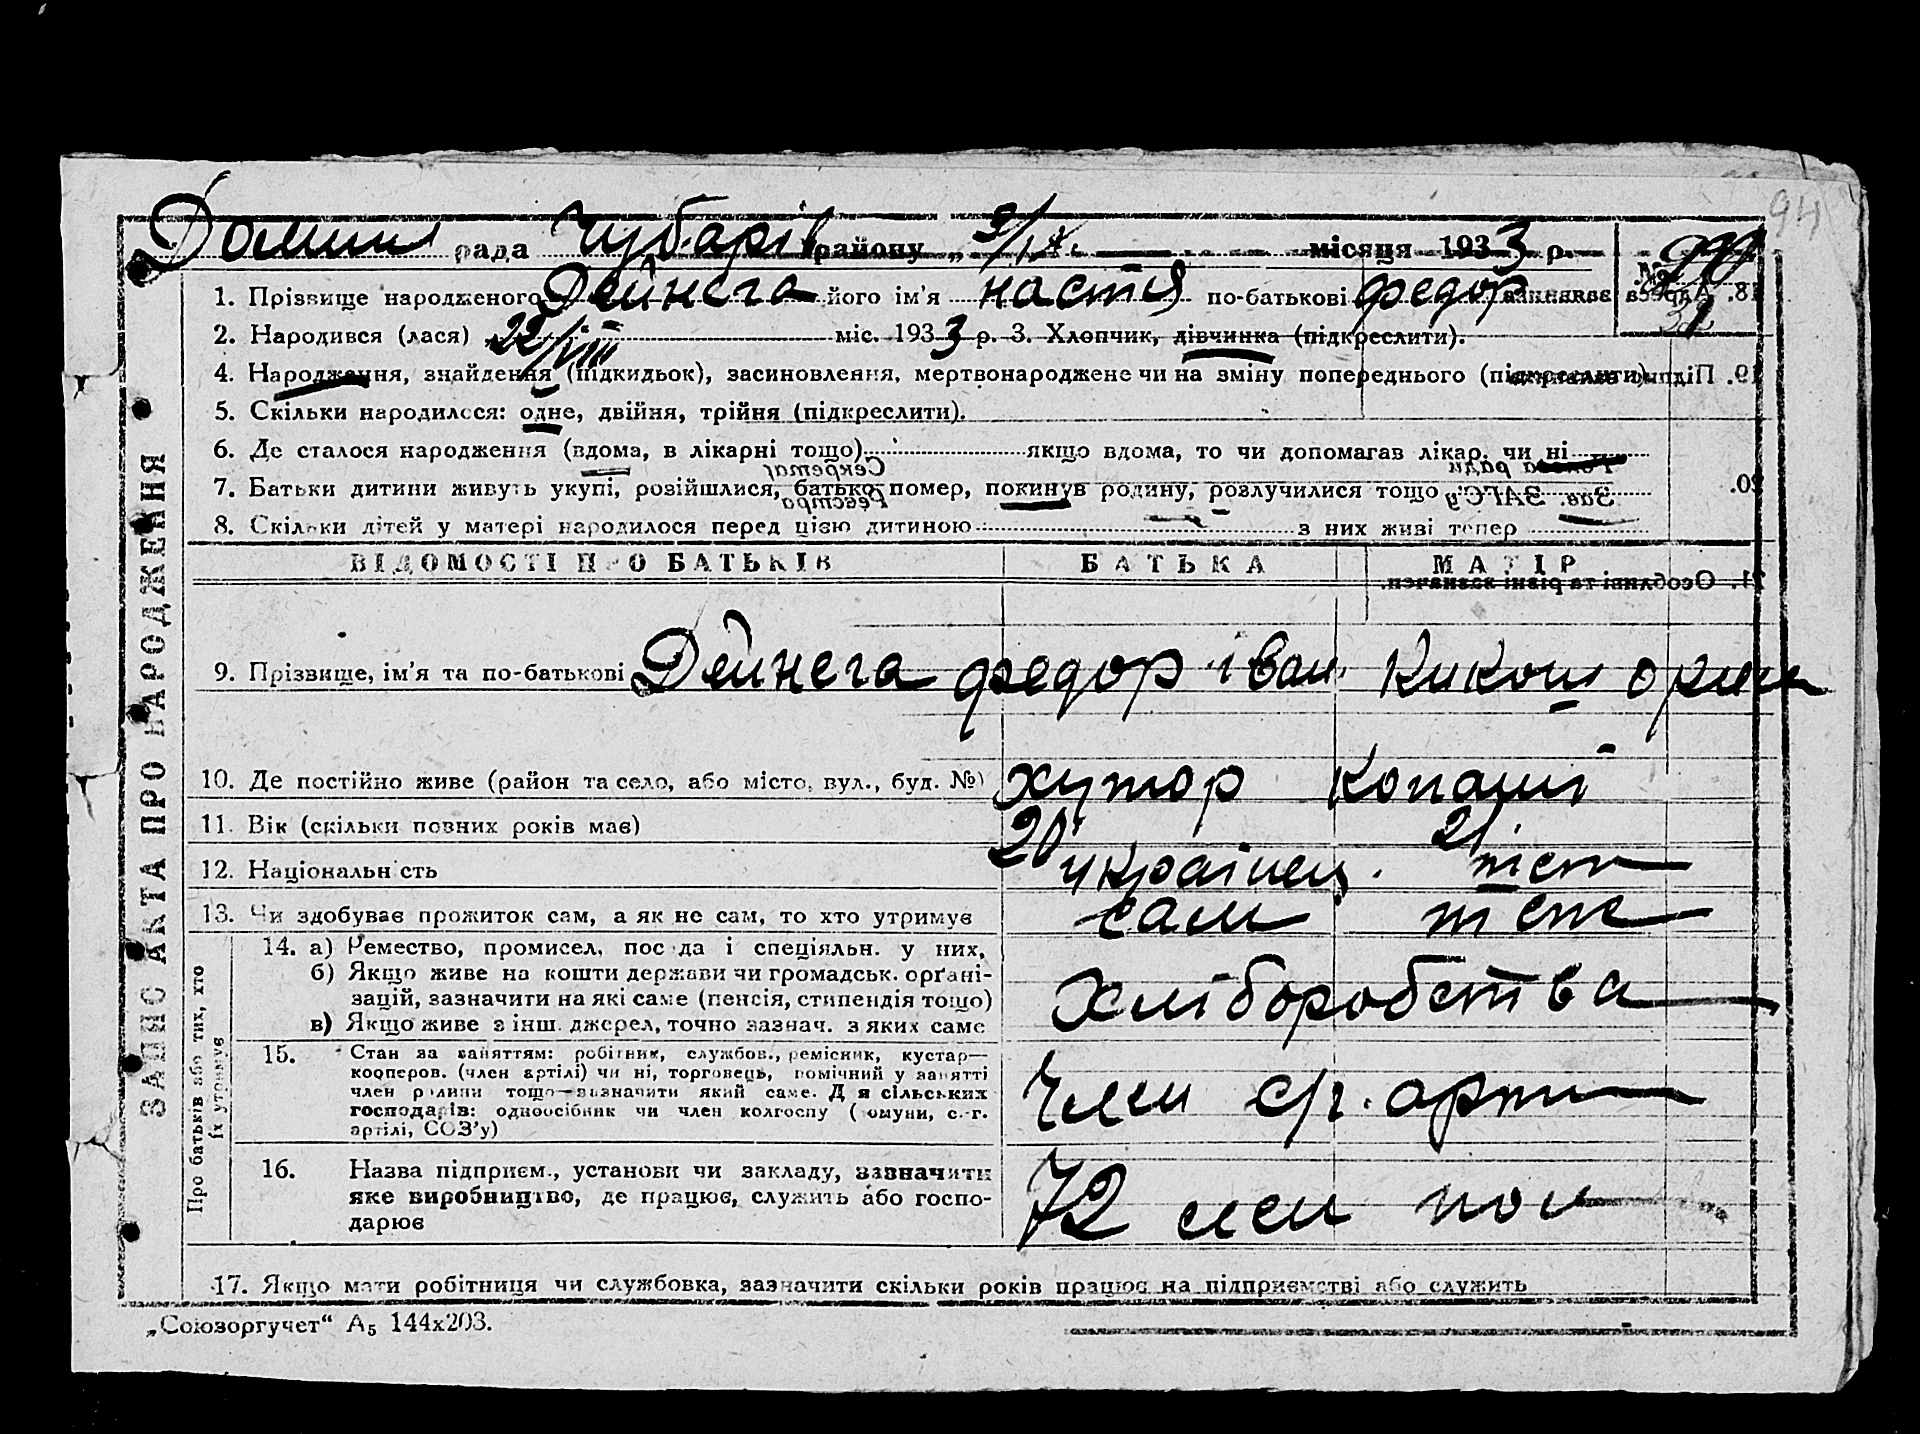 94
рада Чубарів району „ 9/ІХ. місяця 1933 р. №
1. Прізвище народженого Дейнега його ім'я настя по-батькові федор
2. Народився (лася) 22/VIII міс. 1933 р. 3. Хлопчик, дівчинка (підкреслити).
4. Народження, знайдення (підкидьок), засиновлення, мертвонароджене чи на зміну попереднього (підкреслити)
5. Скільки народилося: одне, двійня, трійня (підкреслити).
6. Де сталося народження (вдома, в лікарні тощо) якщо вдома, то чи допомагав лікар, чи ні
7. Батьки дитини живуть укупі, розійшлися, батько помер, покинув родину, розлучилися тощо
8. Скільки дітей у матері народилося перед цією дитиною з них живі тепер
ВІДОМОСТІ ПРО БАТЬКІВ БАТЬКА МАТІР
9. Прізвище, ім'я та по-батькові Дейнега федор іван.
10. Де постійно живе (район та село, або місто, вул., буд. №) хутор копані
11. Вік (скільки повних років має) 20 21
12. Національність українец. теж
13. Чи здобуває прожиток сам, а як не сам, то хто утримує сам теж
14. а) Ремество, промисел, посада і спеціяльн. у них,
б) Якщо живе на кошти держави чи громадськ. орґані-
зацій, зазначити на які саме (пенсія, стипендія тощо)
в) Якщо живе з інш. джерел, точно зазнач. з яких саме
хліборобства
15. Стан за заняттям: робітник, службов., ремісник, кустар—
кооперов. (член артілі) чи ні, торговець, помічний у занятті
член родини тощо—визначити який саме. Для сільських
господарів: одноосібник чи член колгоспу (комуни, с.-г.
артілі, СОЗ'у)
член с/г. арти
16. Назва підприєм., установи чи закладу, зазначити
яке виробництво, де працює, служить або госпо-
дарює
72
17. Якщо мати робітниця чи службовка, зазначити скільки років працює на підприємстві або служить
„Союзоргучет“ А5 144х203.
ЗАПИС АКТА ПРО НАРОДЖЕННЯ
Про батьків або тих, хто
їх утримує